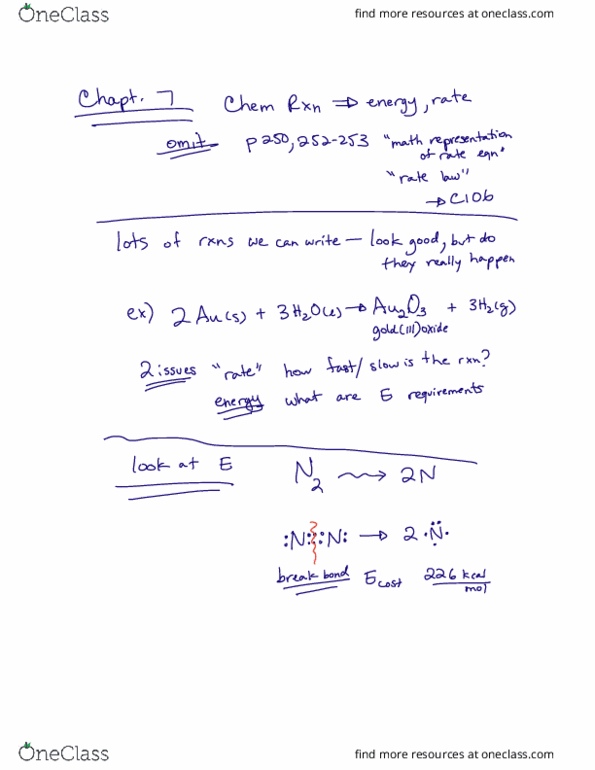 OneClass
find more resources at oneclass.com
Chapt. 7 Chem Rxn ⇒ energy, rate
omit p250, 252-253 "math representation
of rate eqn"
"rate law"
→ C106
lots of rxns we can write — look good, but do
they really happen
ex) 2 Au(s) + 3H₂O(l) → Au₂O₃ + 3H₂(g)
gold(III) oxide
2 issues "rate" how fast/slow is the rxn?
energy what are E requirements
look at E N₂ ⇝ 2N
:N⋮⋮N: → 2 ·N̈·
break bond Ecost 226 kcal
mol
OneClass
find more resources at oneclass.com